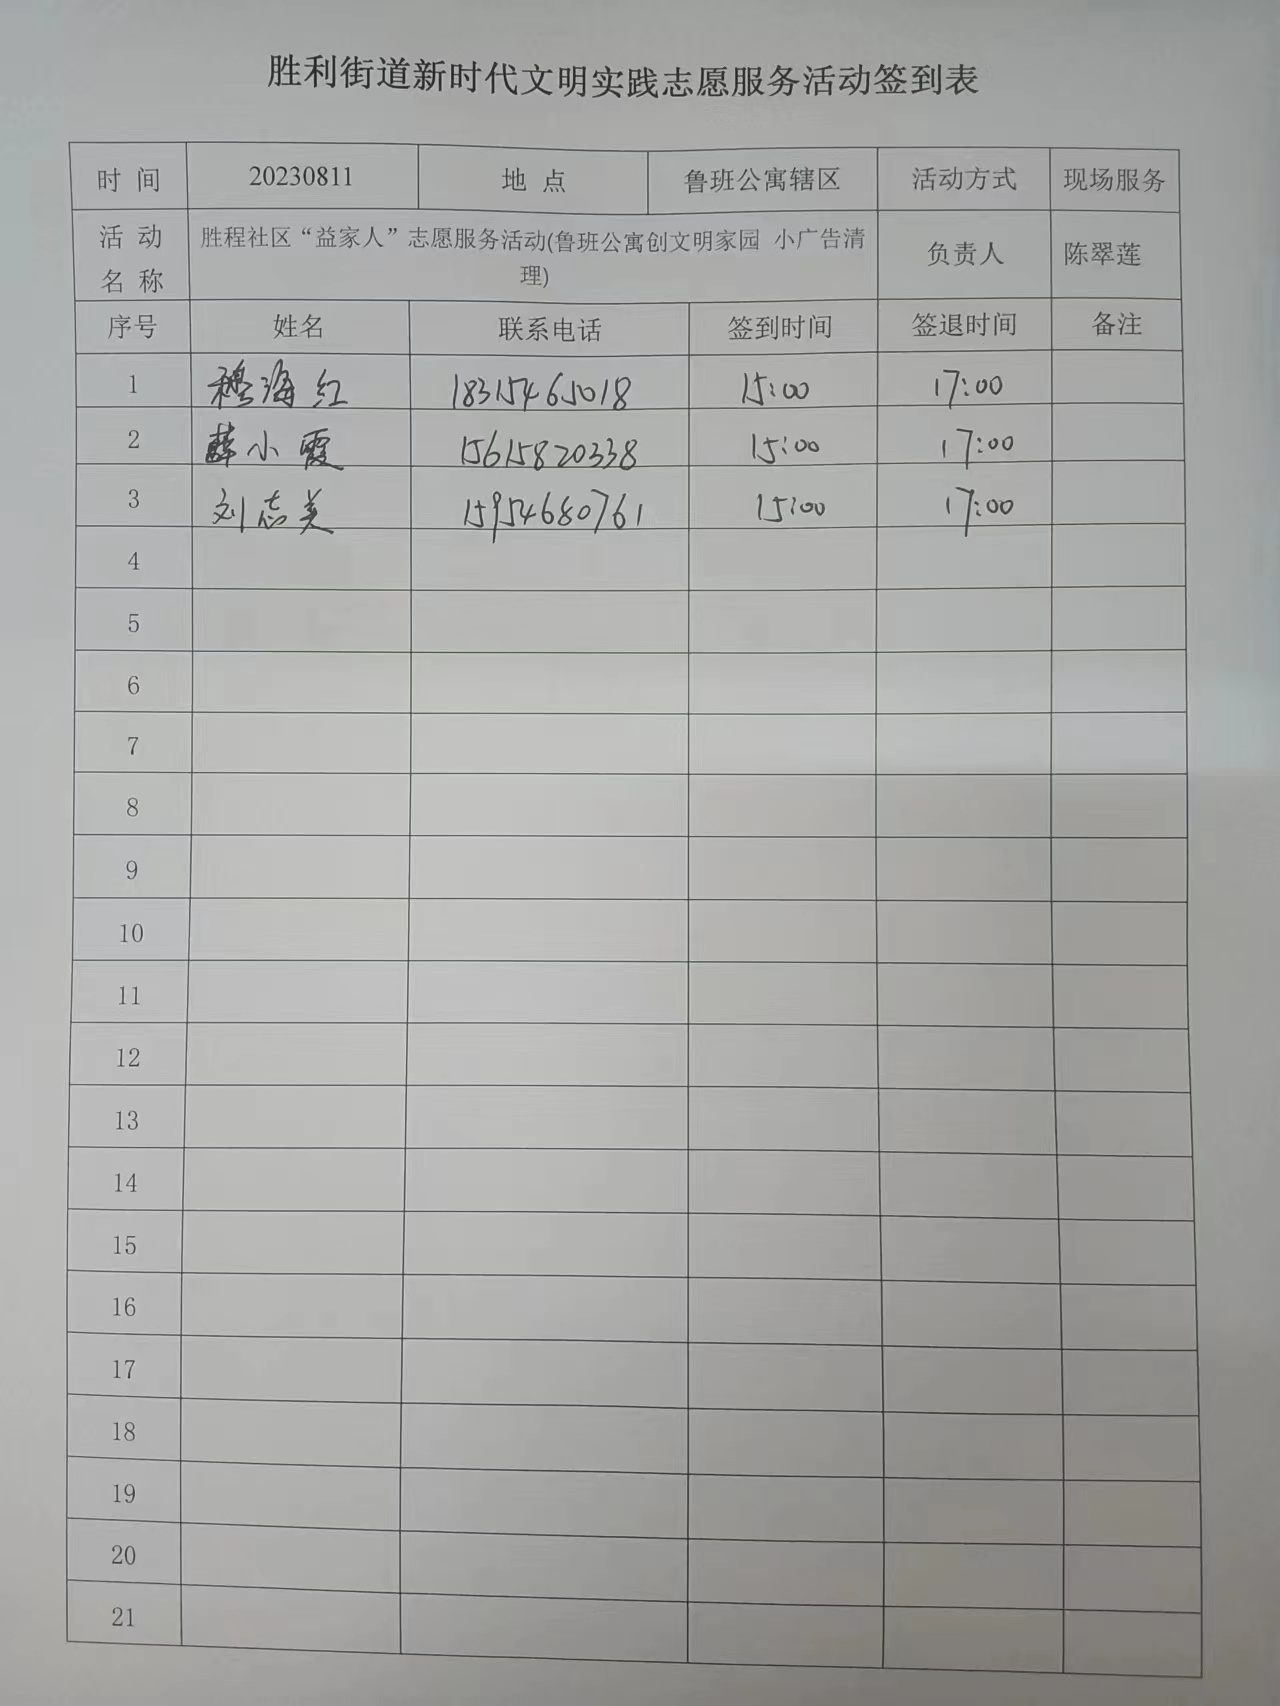 胜利街道新时代文明实践志愿服务活动签到表
时 间 20230811 地 点 鲁班公寓辖区 活动方式 现场服务
活 动 名 称 胜程社区“益家人”志愿服务活动(鲁班公寓创文明家园 小广告清
理) 负责人 陈翠莲
序号 姓名 联系电话 签到时间 签退时间 备注
1 穆海红 18315465018 15:00 17:00
2 薛小霞 15615820338 15:00 17:00
3 刘志美 15954680761 15:00 17:00
4
5
6
7
8
9
10
11
12
13
14
15
16
17
18
19
20
21